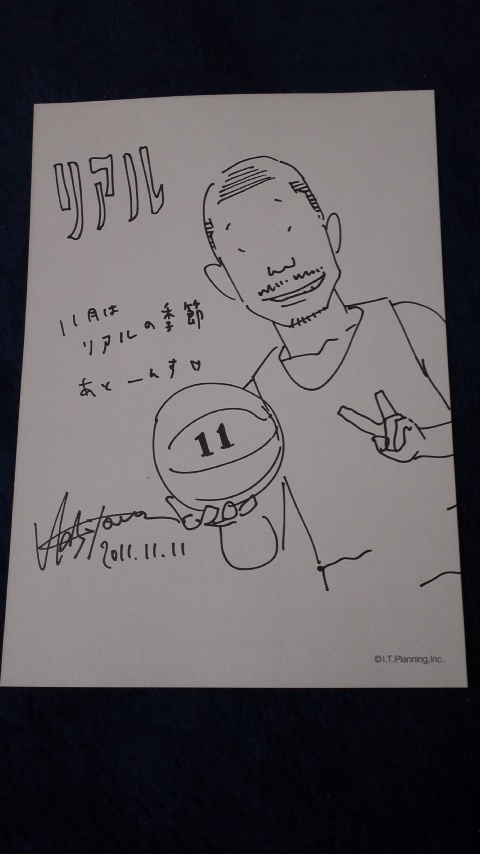 リアル
11月は
リアルの季節
あと一んす♡
11
2011.11.11
©I.T.Planning,Inc.